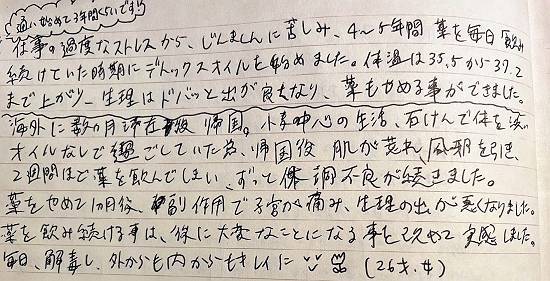 通い始めて3年間くらいです!!
仕事の過度なストレスから、じんましんに苦しみ、4〜5年間 薬を毎日飲み
続けていた時期にデトックスオイルを始めました。体温は35.5から37.2
まで上がり、生理はドバッと出が良くなり、薬もやめる事ができました。
海外に数ヶ月滞在後 帰国。小麦中心の生活、石けんで体を洗い
オイルなしで過ごしていた為、帰国後 肌が荒れ、風邪を引き、
2週間ほど薬を飲んでしまい、ずっと体調不良が続きました。
薬をやめて1ヶ月後、副作用で子宮が痛み、生理の出が悪くなりました。
薬を飲み続ける事は、後に大変なことになる事を改めて実感しました。
毎日、解毒し、外からも内からもキレイに (26才.女)